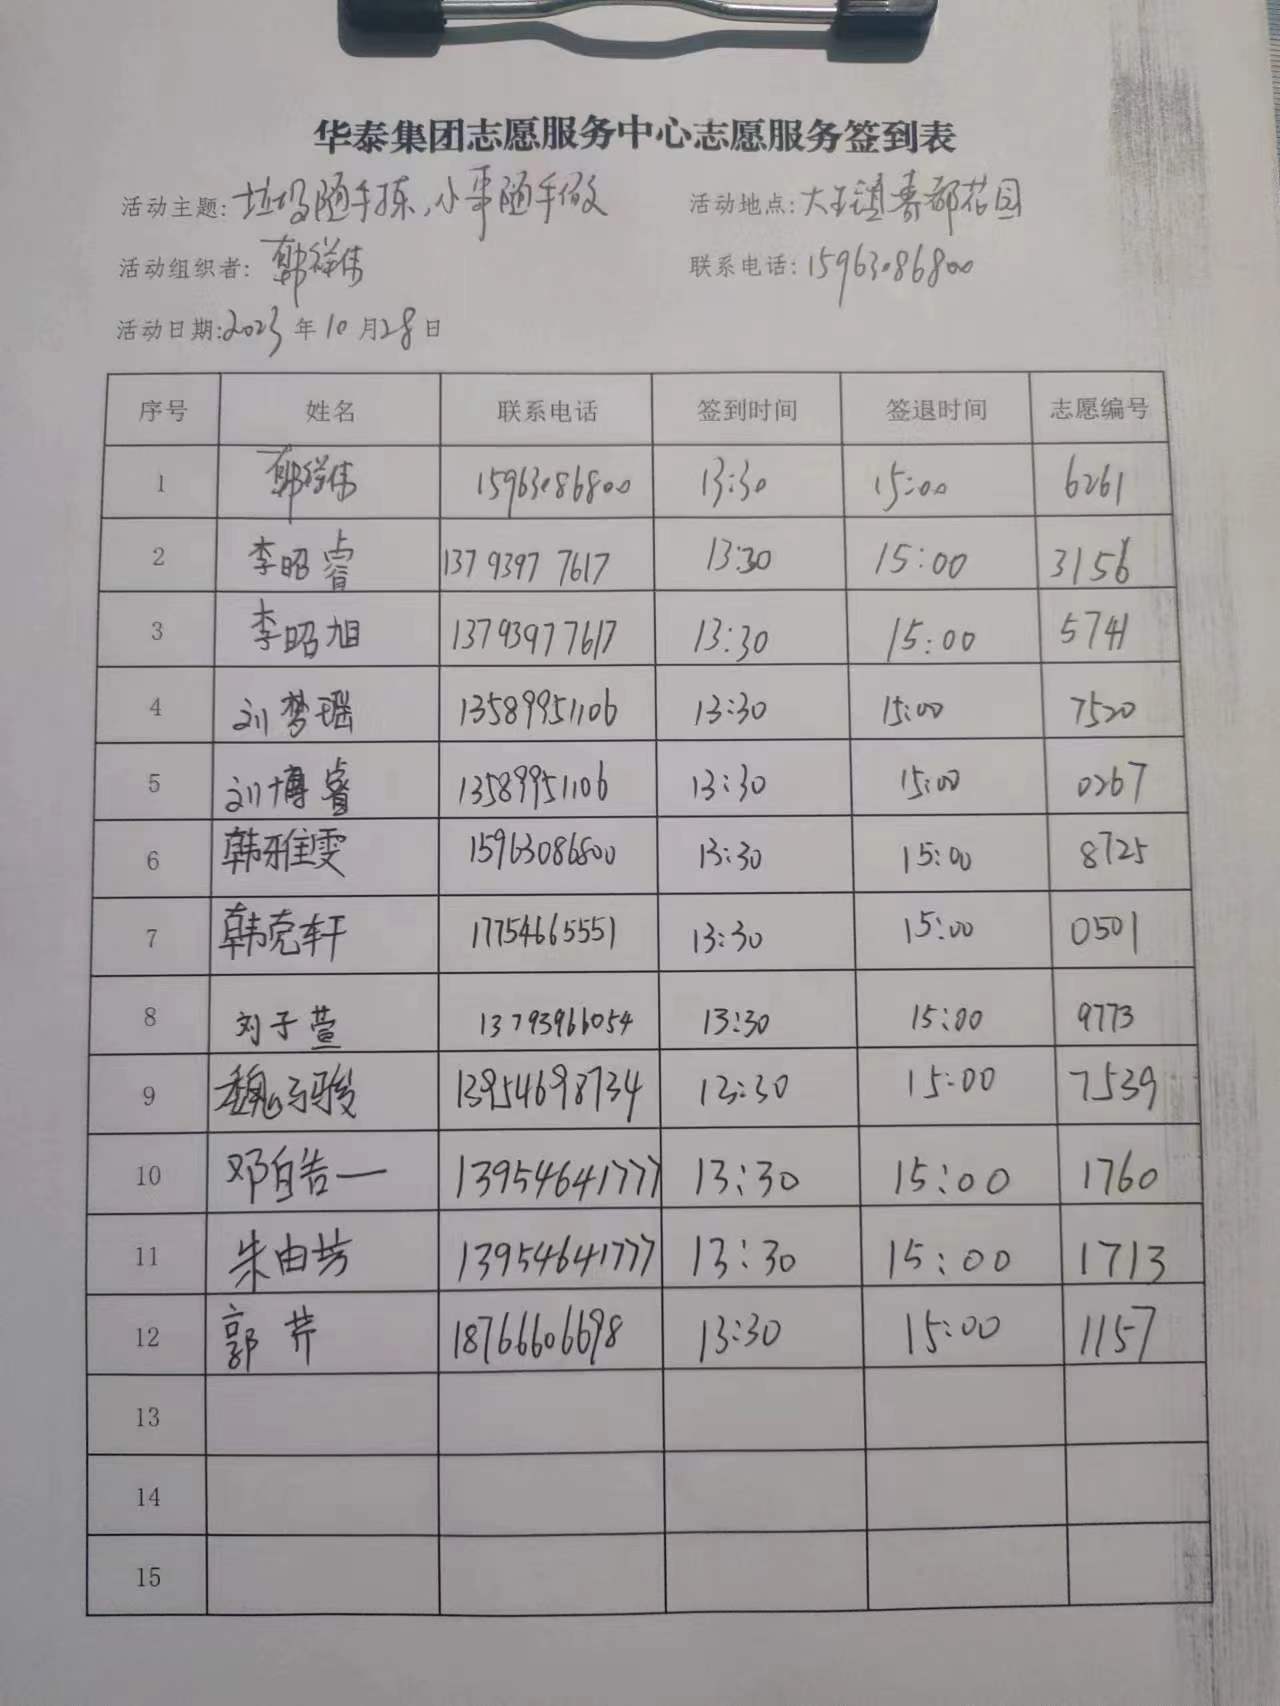 华泰集团志愿服务中心志愿服务签到表
活动主题:垃圾随手拣,小事随手做 活动地点:大王镇春都花园
活动组织者: 韩祥伟 联系电话:15963086800
活动日期:2023年10月28日
序号 姓名 联系电话 签到时间 签退时间 志愿编号
1 韩祥伟 15963086800 13:30 15:00 6261
2 李昭睿 13793977617 13:30 15:00 3156
3 李昭旭 13793977617 13:30 15:00 5741
4 刘梦瑶 13589951106 13:30 15:00 7520
5 刘博睿 13589951106 13:30 15:00 0267
6 韩雅雯 15963086800 13:30 15:00 8725
7 韩亮轩 17754665551 13:30 15:00 0501
8 刘子萱 13793966054 13:30 15:00 9773
9 魏子骏 13954698734 13:30 15:00 7539
10 邓皓一 13954641777 13:30 15:00 1760
11 朱由芳 13954641777 13:30 15:00 1713
12 郭芹 18766606698 13:30 15:00 1157
13
14
15